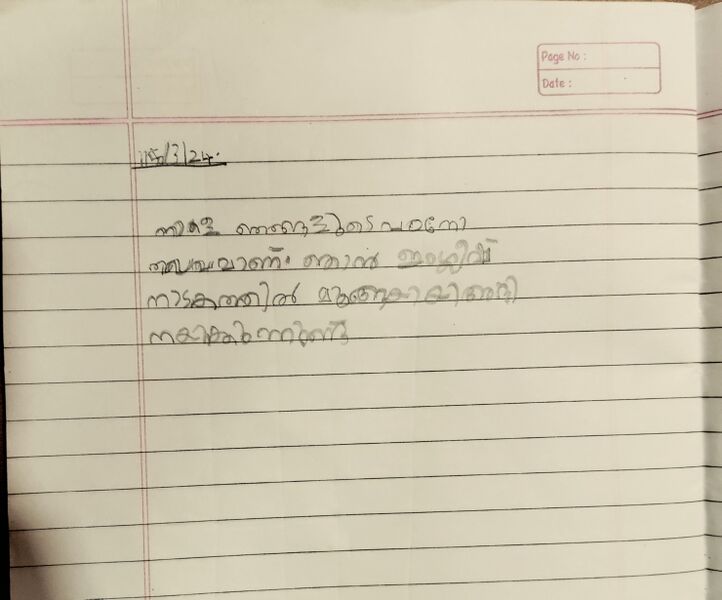 Page No :
Date :
15/3/24.
നാളെ ഞങ്ങളുടെ പഠനോ
ത്സവമാണ്. ഞാൻ ഇംഗ്ലീഷ്
നാടകത്തിൽ മുത്തശ്ശിയായി അഭി
നയിക്കുന്നുണ്ട്